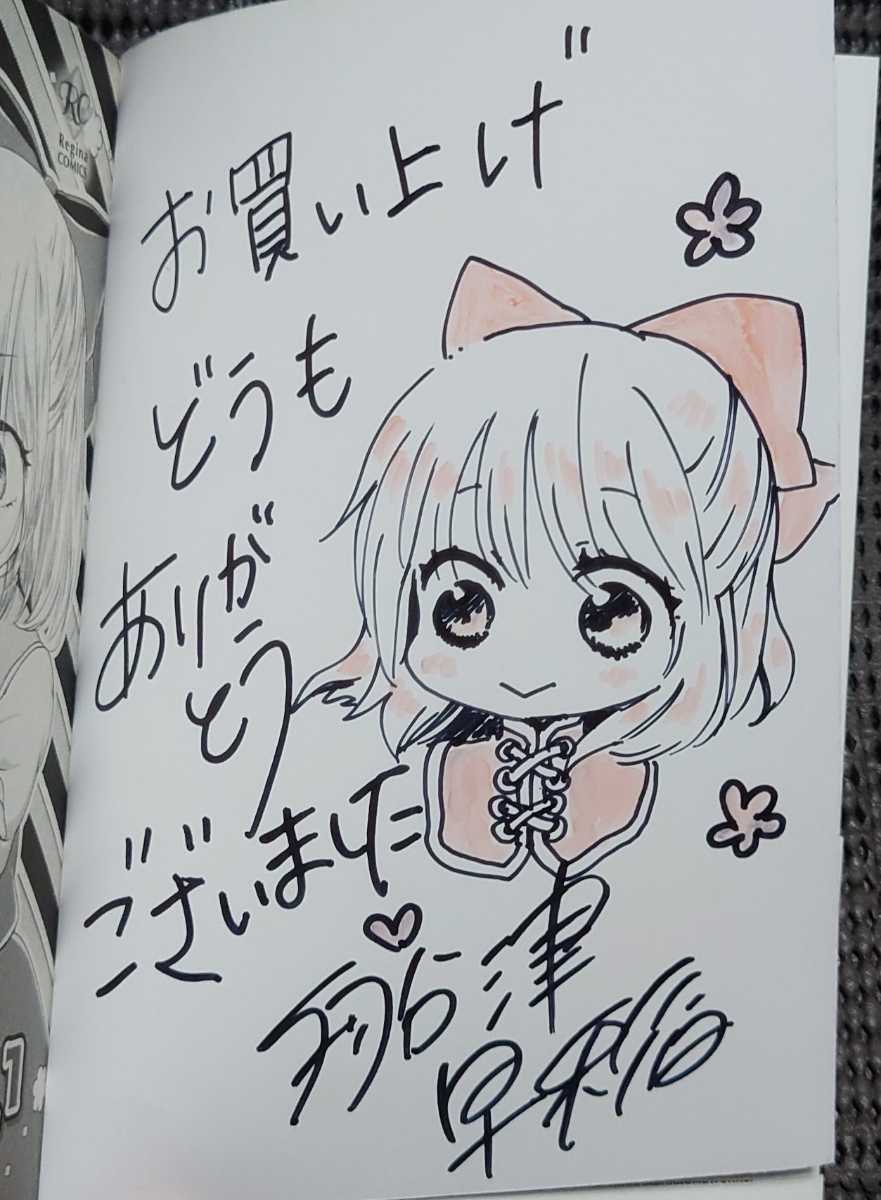 RC
Regina
COMICS
お買い上げ
どうも
ありが
とう
ございました♡